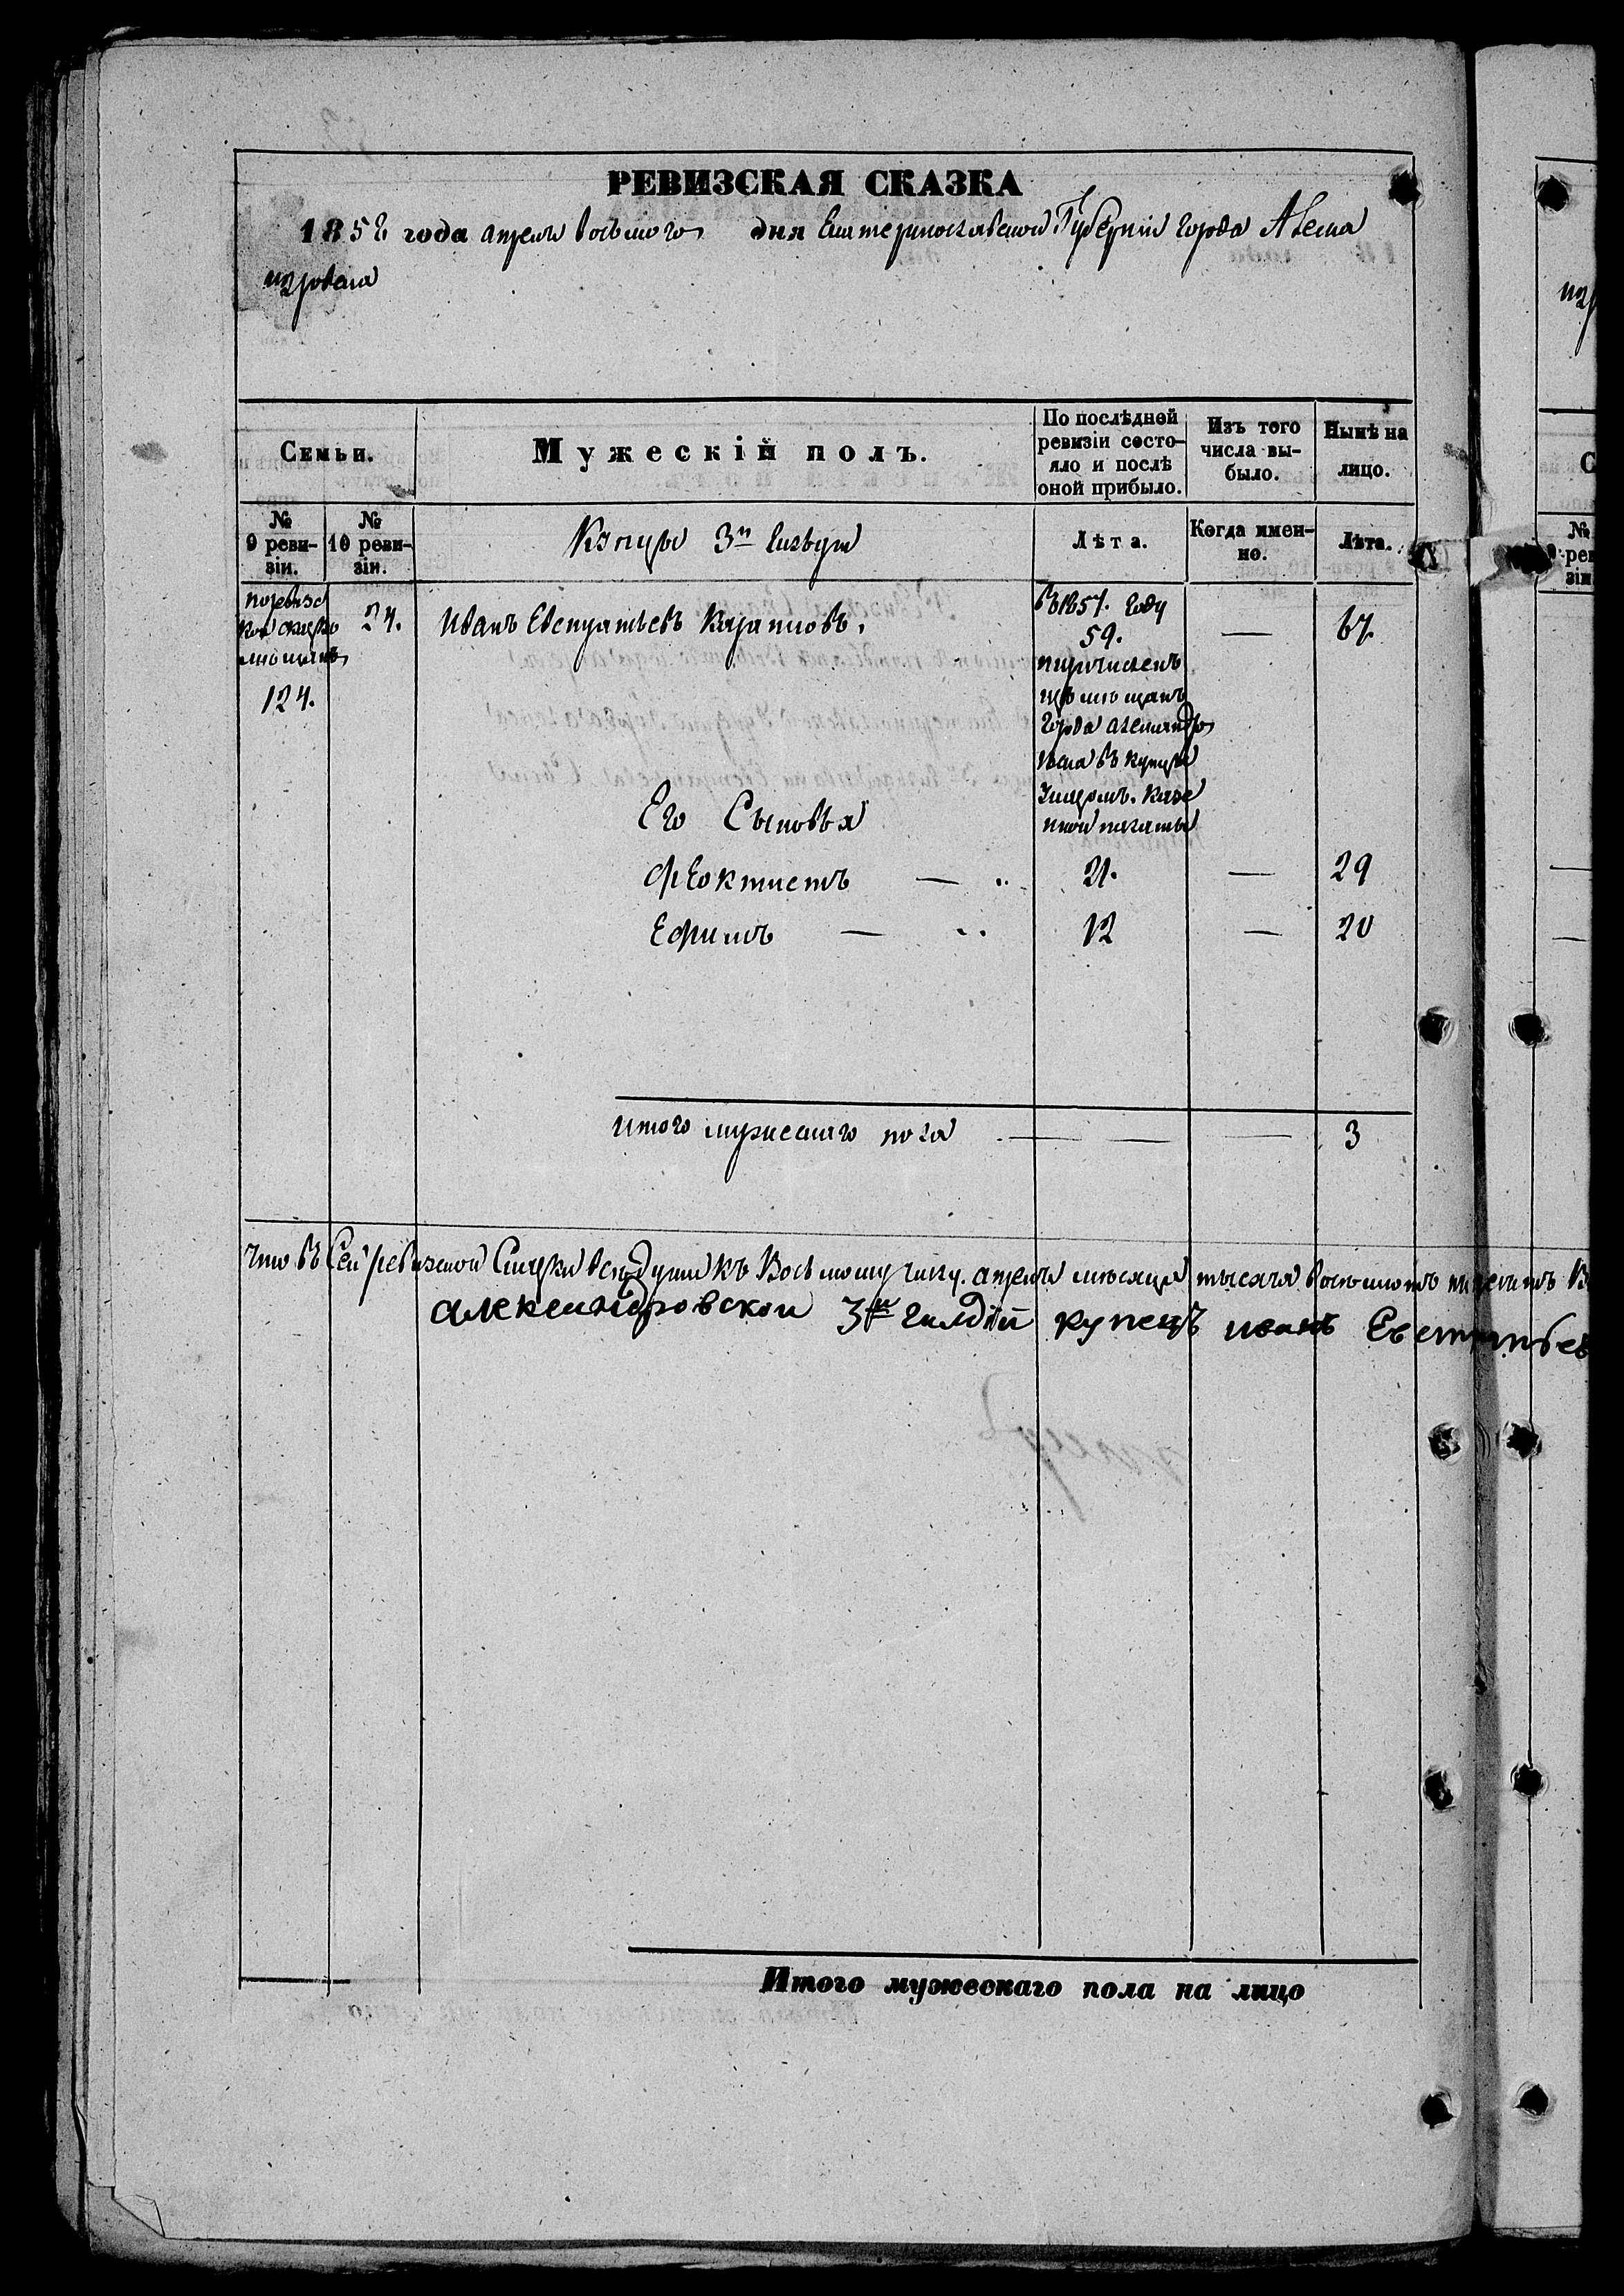 РЕВИЗСКАЯ СКАЗКА
1858 года апреля восьмаго дня Екатеринославской Губерніи города Алекса
ндровска
Семьи.
Мужескій полъ.
По послѣдней ревизіи состо-
яло и послѣ
оной прибыло.
Изъ того
числа вы-
было.
Нынѣ на
лицо.
№
9 реви-
зіи.
№
10 реви-
зіи.
Купцы 3й Гильдіи
Лѣта.
Когда имен-
но.
Лѣта.
поревизс
кой сказке
мѣщанъ
124.
24.
Иванъ Евстратьевъ
въ 1857. году
59.
перечисленъ
изъ мѣщанъ
города александро
вска въ купцы
Казе
нной палаты
—
67.
Его Сыновья
Феоктистъ — ..
21.
—
29
Ефимъ — ..
12
—
20
Итого мужескаго пола — — — 3
Что въ Сей ревизской Сказки всѣ души къ Восьмому числу. апреля мѣсяца тысяча восемьсотъ пятдесятъ
александровской 3й гилдіи купецъ иванъ Евстратьев
Итого мужескаго пола на лицо